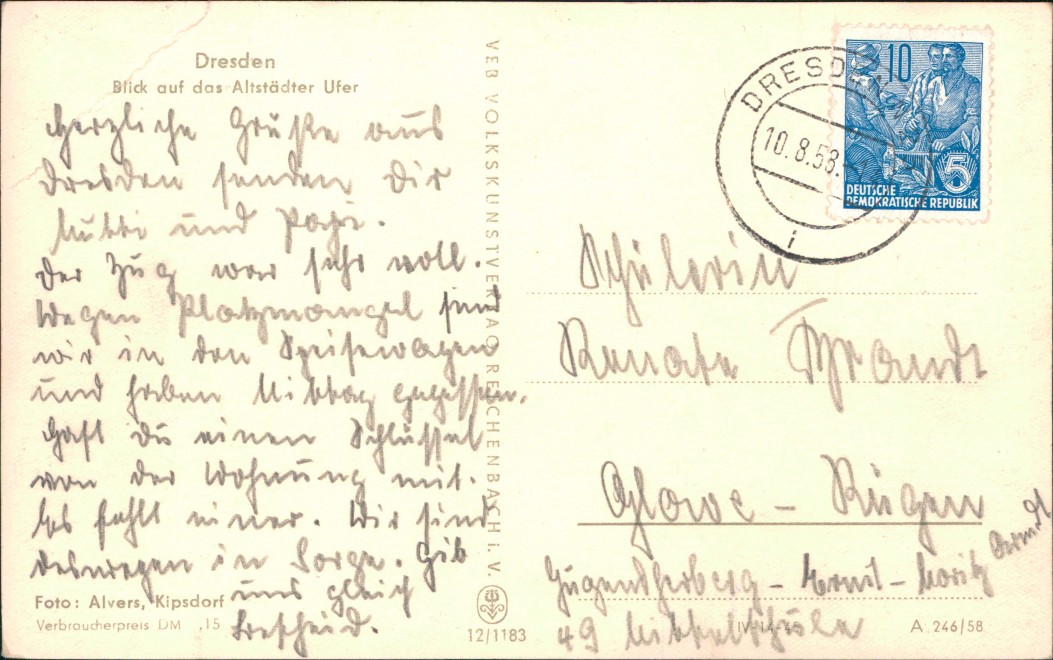 Dresden
Blick auf das Altstädter Ufer
Herzliche Grüße aus
Dresden senden Dir
Mutti und Papi.
Der Zug war sehr voll.
Wegen Platzmangel sind
wir in den Speisewagen
und haben Mittag gegessen.
Hast Du einen Schlüssel
von der Wohnung mit.
Es fehlt einer. Wir sind
deswegen in Sorge. Gib
uns gleich
Bescheid.
Foto: Alvers, Kipsdorf
Verbraucherpreis DM .15
VEB VOLKSKUNSTVERLAG REICHENBACH i. V.
12/1183
DRESDEN
10.8.58
i
10
5
DEUTSCHE
DEMOKRATISCHE REPUBLIK
Schülerin
Renate
Glowe - Rügen
Jugendherberg - Ernst - Moritz Arndt
49 Mittelschule
A 246/58